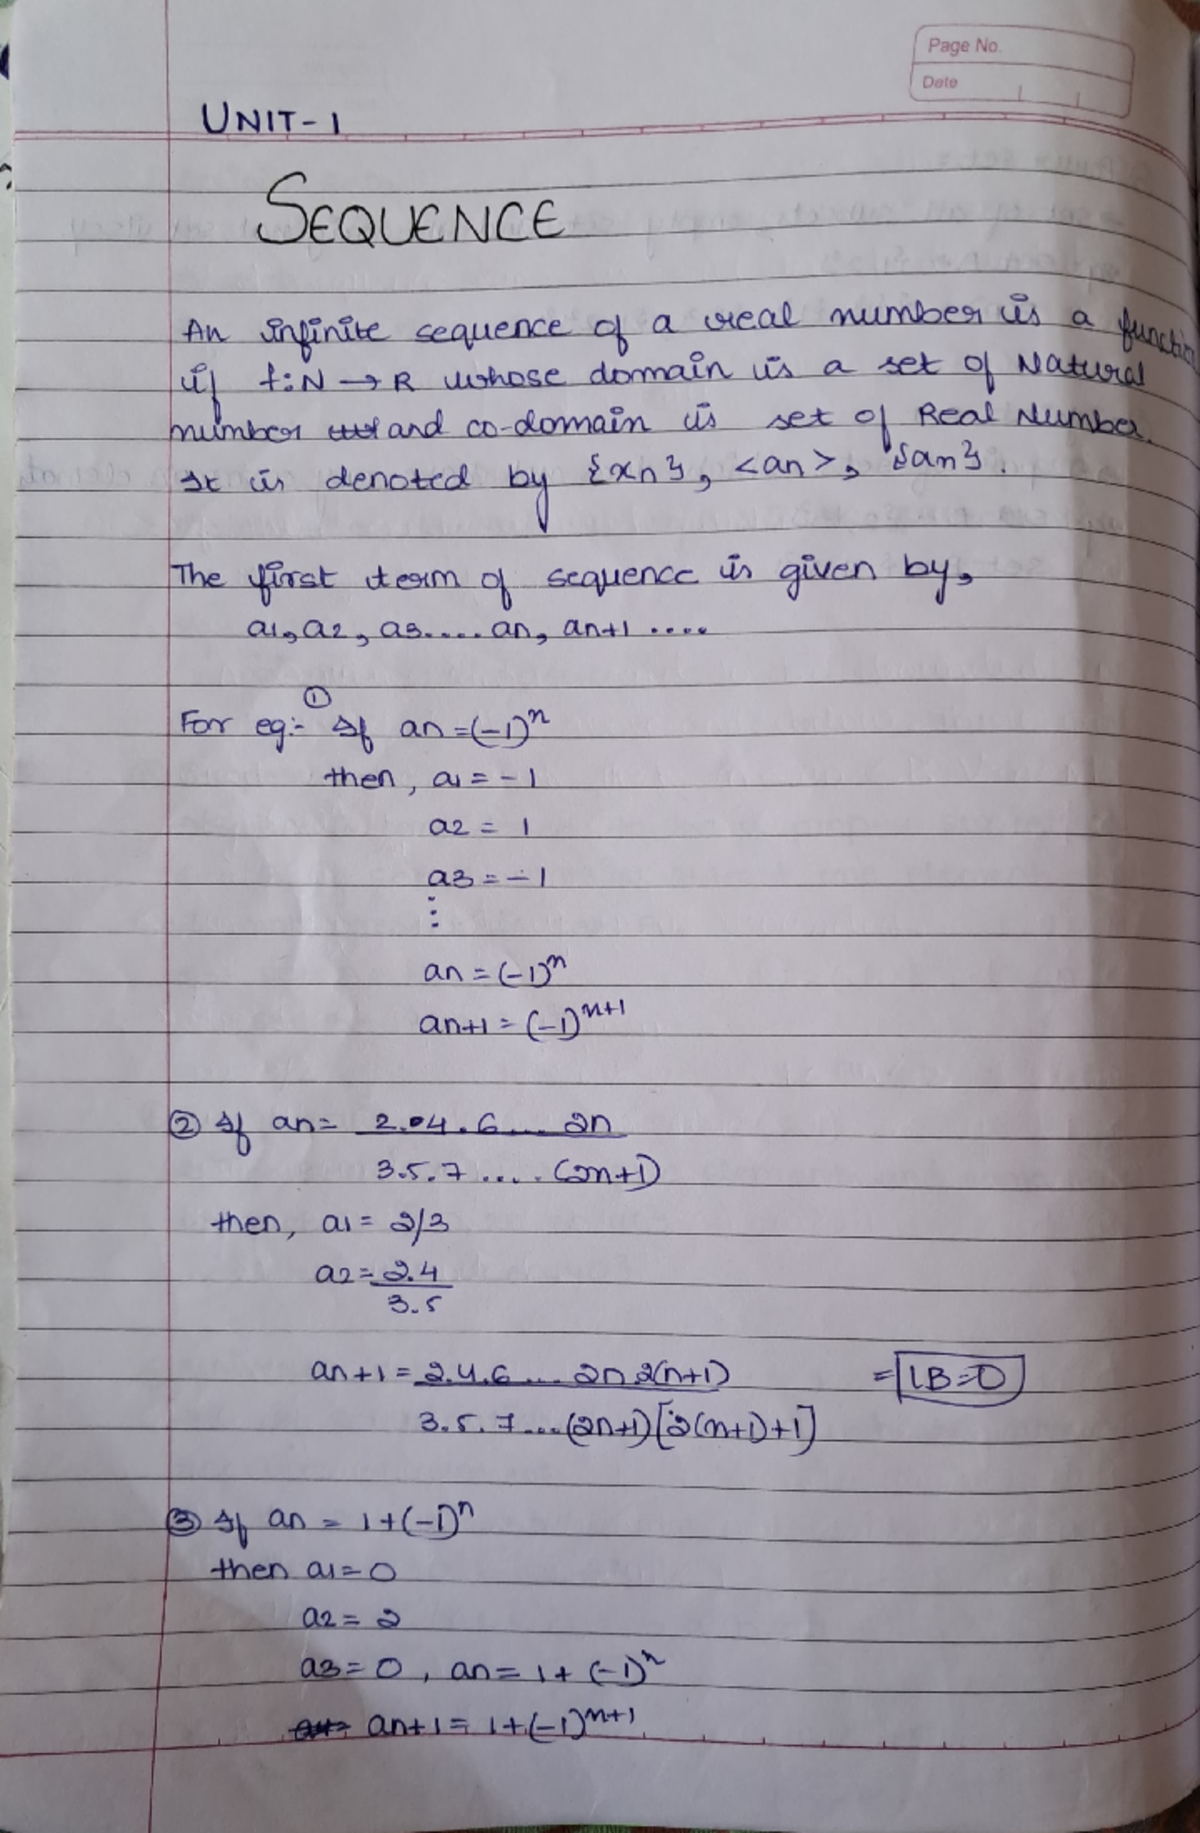 Page No.
Date
UNIT-1
SEQUENCE
An infinite sequence of a real number is a function
if f:N → R whose domain is a set of Natural
number and co-domain is set of Real Number.
It is denoted by {xn}, <an>, {an}.
The first term of sequence is given by,
a1, a2, a3.... an, an+1 ....
①
For eg:- If an =(-1)^n
then, a1 = -1
a2 = 1
a3 = -1
⋮
an = (-1)^n
an+1 = (-1)^n+1
② If an= 2.4.6... 2n
3.5.7 .... (2n+1)
then, a1 = 2/3
a2 = 2.4
3.5
an+1 = 2.4.6 ... 2n 2(n+1) = LB=0
3.5.7...(2n+1)[2(n+1)+1]
③ If an = 1+(-1)^n
then a1=0
a2 = 2
a3 = 0, an = 1+ (-1)^n
an+1 = 1+(-1)^n+1